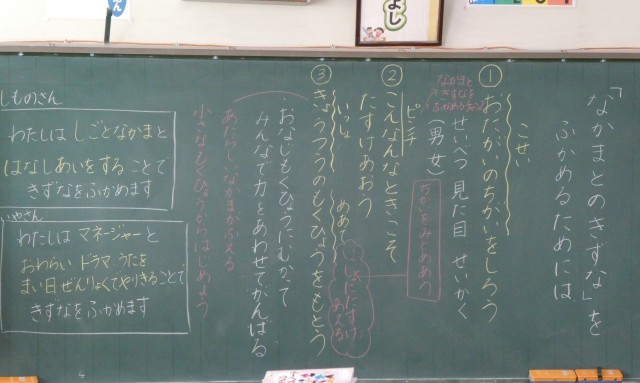 よし
「なかまとのきずな」を
ふかめるためには
こせい
①おたがいのちがいをしろう
せいべつ 見た目 せいかく
(男女)
なかまと
きずなを
ちがいをみとめあう
ピンチ
②こんなんなときこそ
たすけあおう
いっしょ
めあて
③きょうつうのもくひょうをもとう
おなじもくひょうにむかって
みんなで力をあわせてがんばる
あたらしいなかまがふえる
小さなもくひょうからはじめよう
しものさん
わたしは しごとなかまと
はなしあいをすることで
きずなをふかめます
いやさん
わたしは マネージャーと
おわらい ドラマ うたを
まい日ぜんりょくでやりきることで
きずなをふかめます